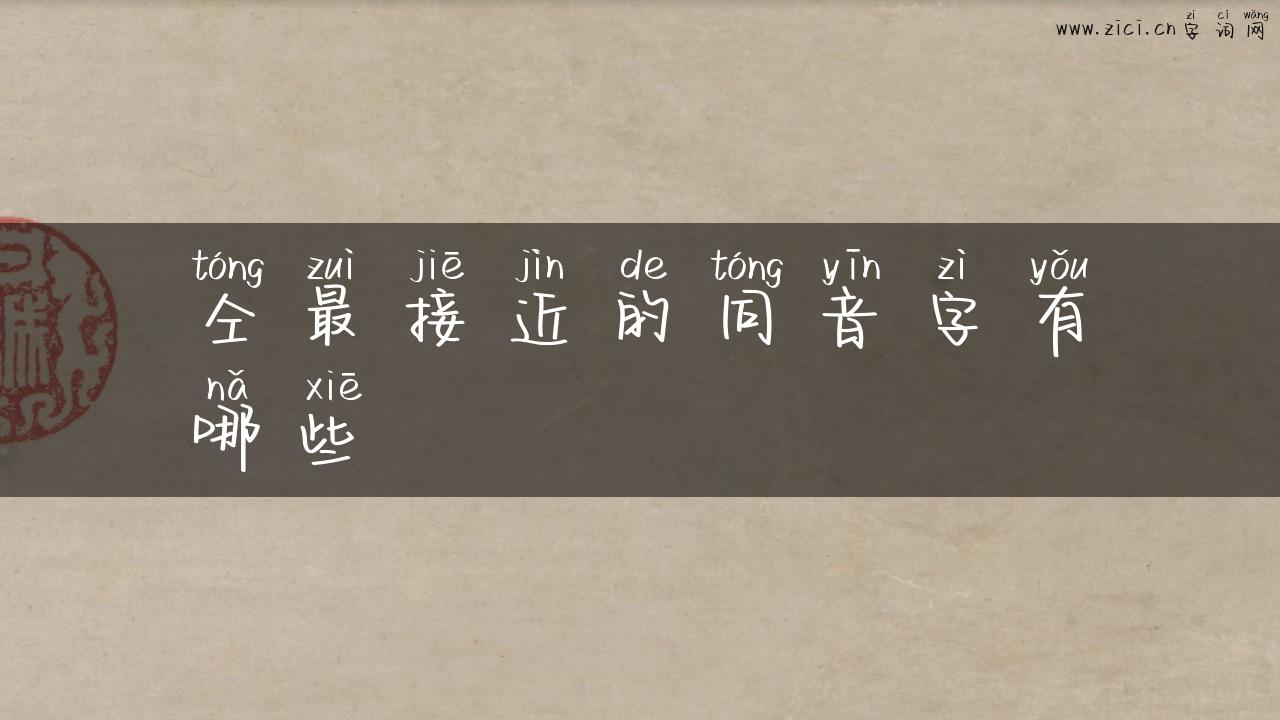 zì cí wǎng
www.zici.cn 字词网
tóng zuì jiē jìn de tóng yīn zì yǒu
仝最接近的同音字有
nǎ xiē
哪些